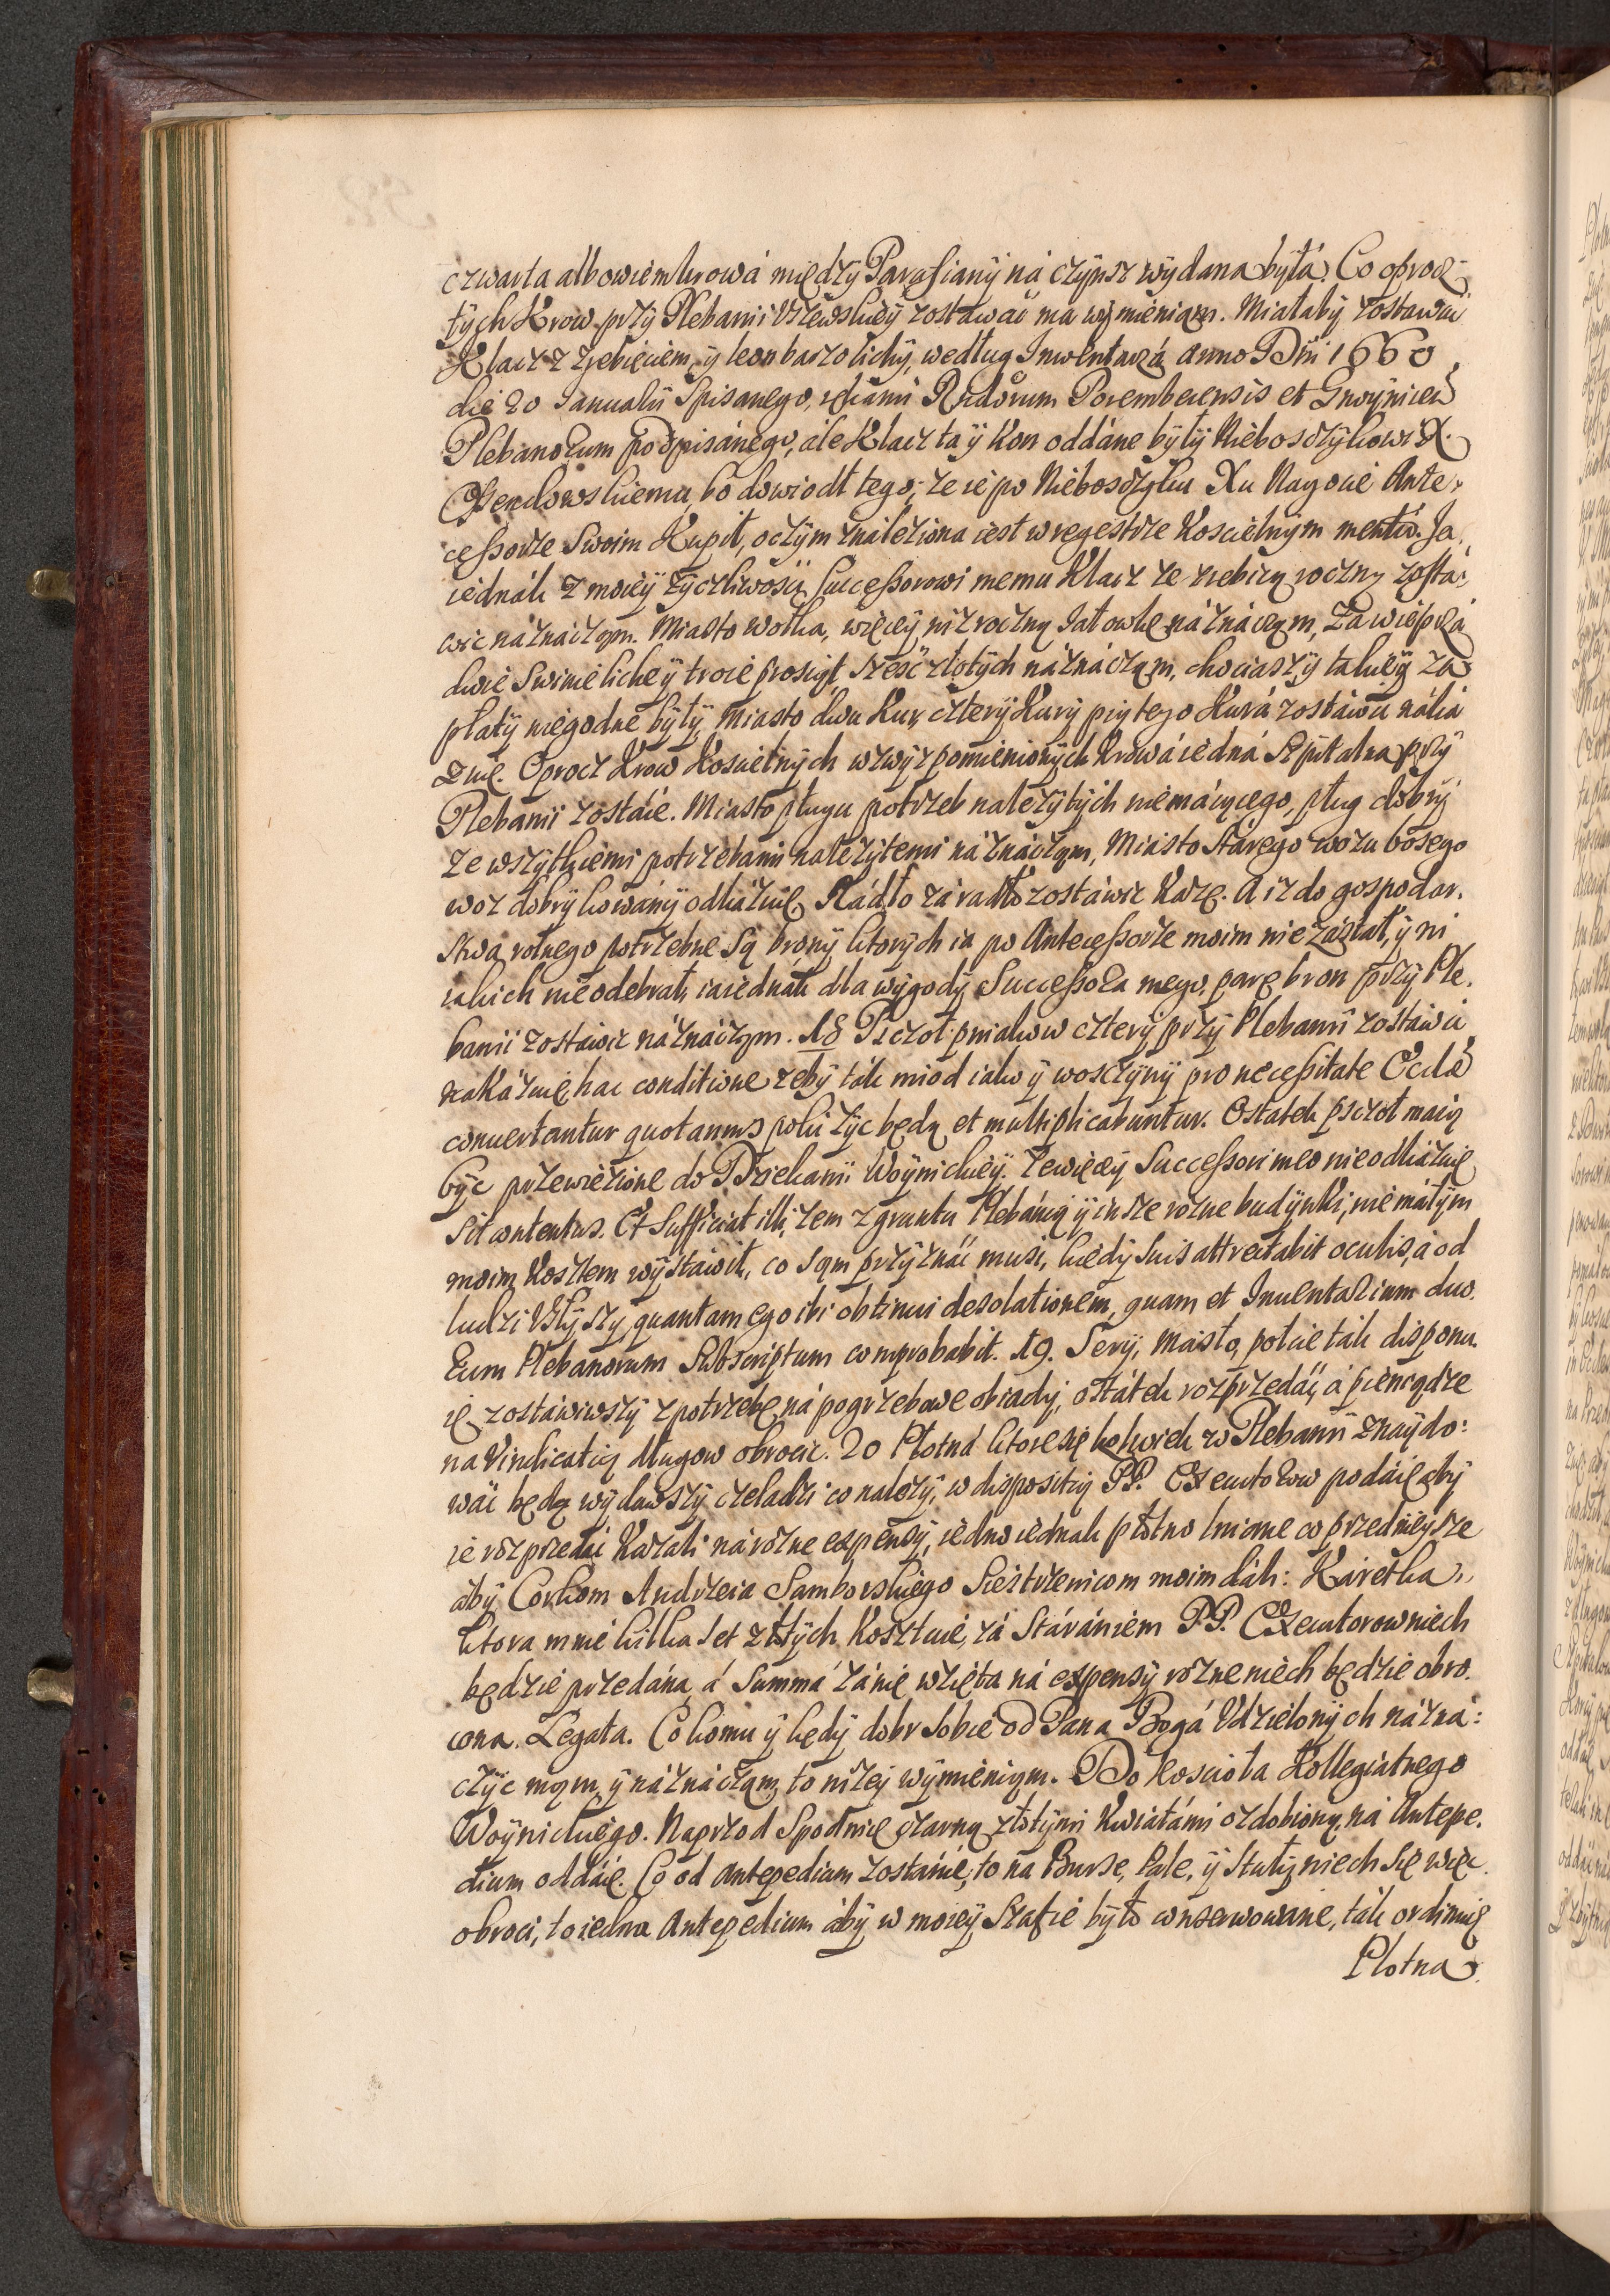 czwarta albowiem krowá między Parafiany ná czynsz wydana byłá. Co oprocz
tych Krow przy Plebanii Vszewskiey zostawać ma wymieniam. Miałaby zostawać
Klacz z zrebięciem, y kon barzo lichy, według Inwentarzá Anno Dni 1660
die 20 Ianuarii Spisanego, rękámi Rndorum Porembecensis et Gnoynicen
Plebanorum podpisánego, ále Klacz ta y kon oddáne były Nieboszczykowi X.
Osendowskiemu, bo dowiodł tego, ze ie po Nieboszczyku Xu Nagocie Ante,
cessorze Swoim Kupił, o czym ználeziona iest w regestrze Koscielnym mentio. Ja,
iednák z moiey zyczliwosci Successorowi memu Klacz ze zrebicą roczną zosta,
wic náznáczam. Miasto wołka, więcey niz roczną Jałowkę náznáczam, Zá wieprzá
dwie Swinie liche y troie prosiąt, szesc złotych náznáczam, chociasz y takiey za
płaty niegodne były, miasto dwu Kur, cztery Kury piątego Kurá zostáwic náká
zuię. Oprocz Krow Koscielnych wzwyz pomienionych Krowá iedná Szpitalna przy
Plebanii zostáie. Miasto pługu potrzeb nalezytych niemáiącego, pług dobry
ze wszytkiemi potrzebami nalezytemi náznáczam, Miásto stárego wozu bosego
woz dobry kowány odkázuię. Rádło zá radło zostáwic Każę. A iz do gospodar.
stwa rolnego potrzebne są brony ktorych ia po Antecessorze moim nie zástał, y ni
iakich nie odebrał, iaiednák dla wygody Successora mego, parę bron przy Ple.
banii zostáwic náznáczam. 18 Pszczoł pniakow cztery przy Plebanii zostáwić
nakázuię, hac conditione zeby ták miod iako y woszczyny pro necessitate Ecclae
conuertantur quotannis poki zyc będą et multiplicabuntur. Ostatek pszczoł maią
byc przewiezione do Dziekanii Woynickiey. Zewięcey Successori meo nieodkázuię
sit contentus. Et sufficiat illi, zem z gruntu Plebánią y insze rozne budynki, nie máłym
moim Kosztem wystáwił, co sąm przyznáć musi, kiedy suis attrectabit oculis, á od
ludzi vsłyszy, quantam ego ibi obtinui desolationem, quam et Inuentarium duo.
rum Plebanorum Subscriptum comprobabit. 19. Sery, Masło, połcie ták disponu.
ię, zostáwiwszy z potrzebę ná pogrzebowe obiady, ostátek rozprzedáć, á pieniądze
na Vindicatią długow obrocic. 20 Płotná ktore się kolwiek w Plebanii znaydo:
wáć będą wydawszy czeladzi co nalezy, w dispositią PP. Exeutorow podáię, áby
ie rozprzedáć Kazali ná rozne expensy, iedno iednak płotno lniane co przednieysze
áby Corkom Andrzeia Samborskiego Siestrzenicom moim dali: Káretka,
ktora mnie kilka set złłtych kosztuie, zá stárániem PP. Exeutorow niech
będzie przedána, á Summá zá nię wzięta ná expensy rozne niech będzie obro.
cona. Legata. Co komu y kędy dobr sobie od Pana Bogá Vdzielonych názna:
czyc mąm, y náznáczam, to nizej wymieniąm. Do Kosciołá Kollegiatnego
Woynickiego. Naprzod Spodnicę czarną złotymi kwiatámi ozdobioną, ná Antepe.
dium oddáię. Co od Antepedium zostánie, to na Bursę, Pale, y stułę niech się więc
obroci, to iedna Antepedium áby w moiey szafie było conserwowane, ták ordinuię
Płotna